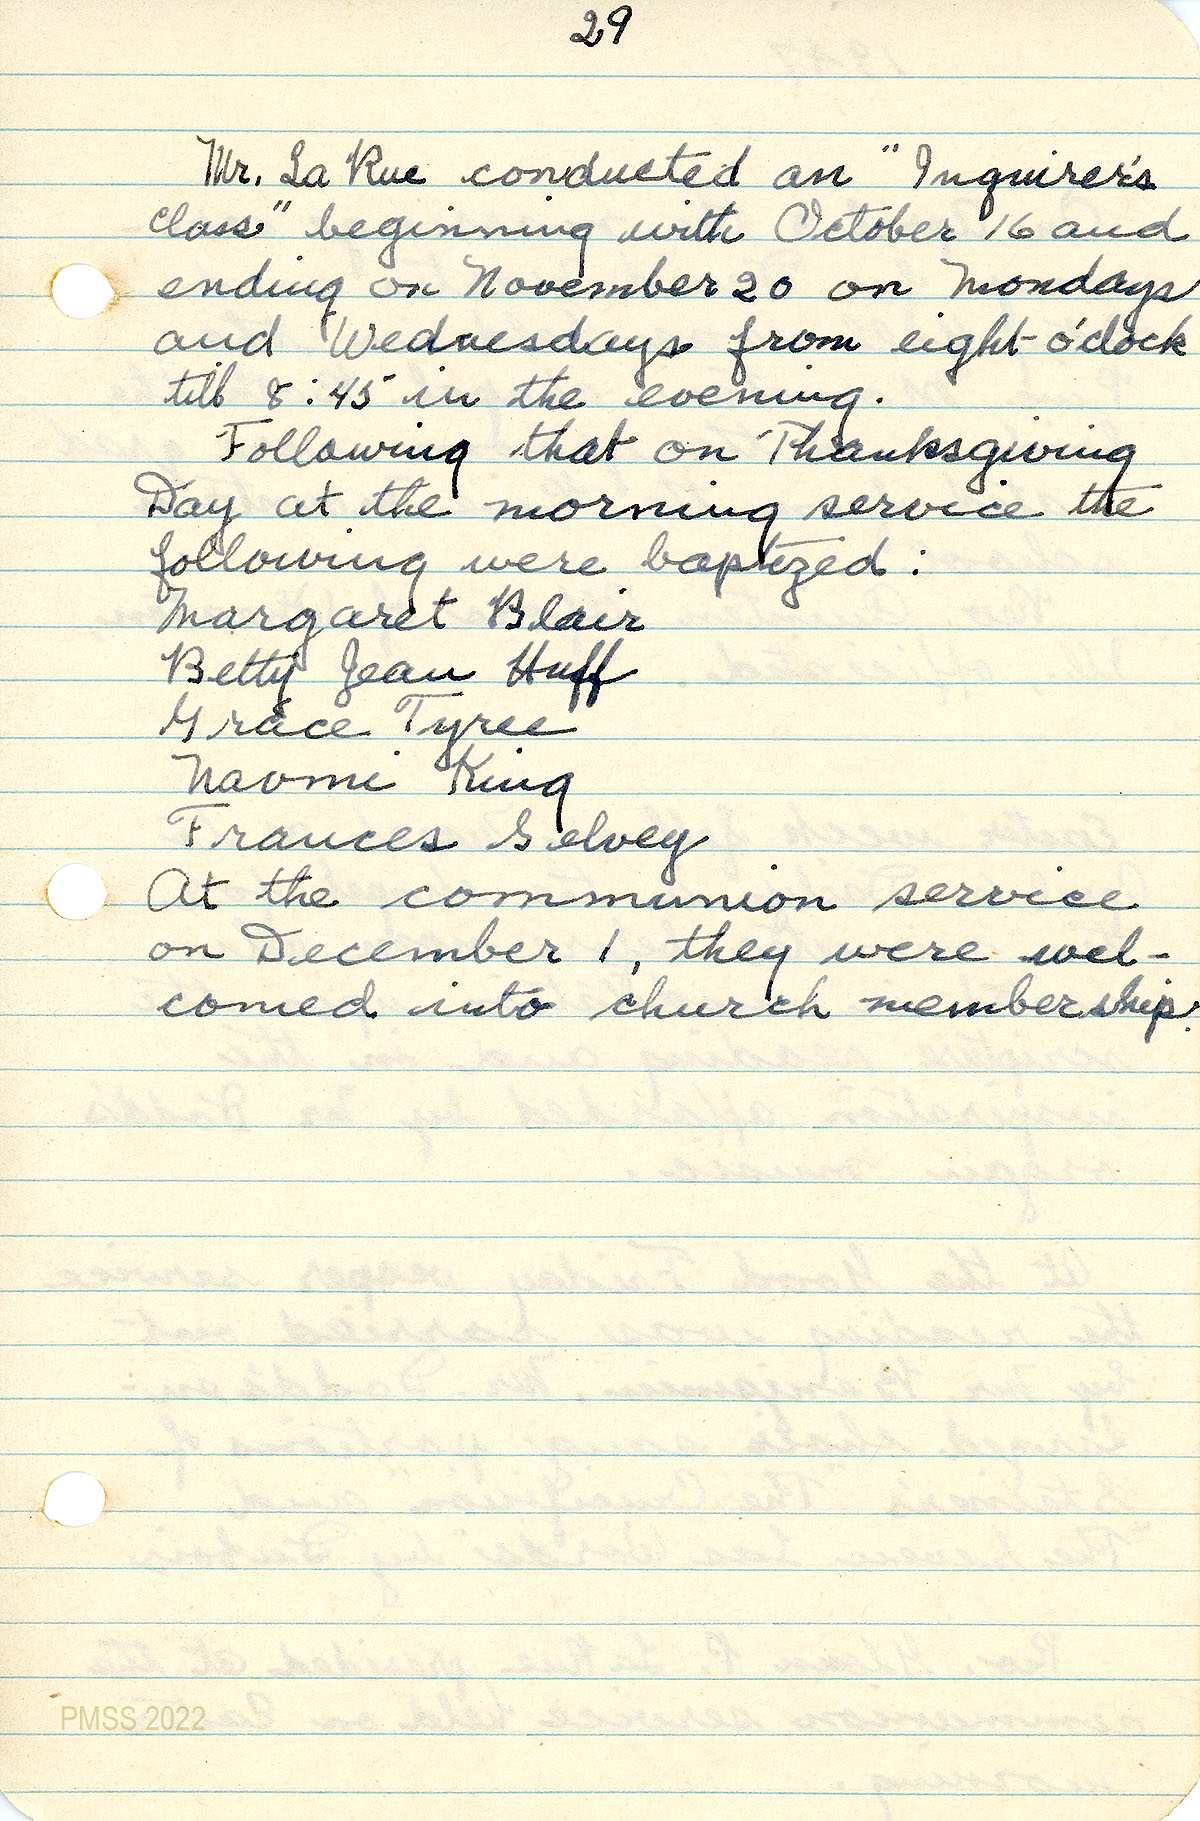 29
Mr. La Rue conducted an "Inquirer's
class" beginning with October 16 and
ending on November 20 on Mondays
and Wednesdays from eight o'clock
till 8:45 in the evening.
Following that on Thanksgiving
Day at the morning service the
following were baptized:
Margaret Blair
Betty Jean Huff
Grace Tyree
Naomi King
Frances Selvey
At the communion service
on December 1, they were wel-
comed into church membership.
PMSS 2022